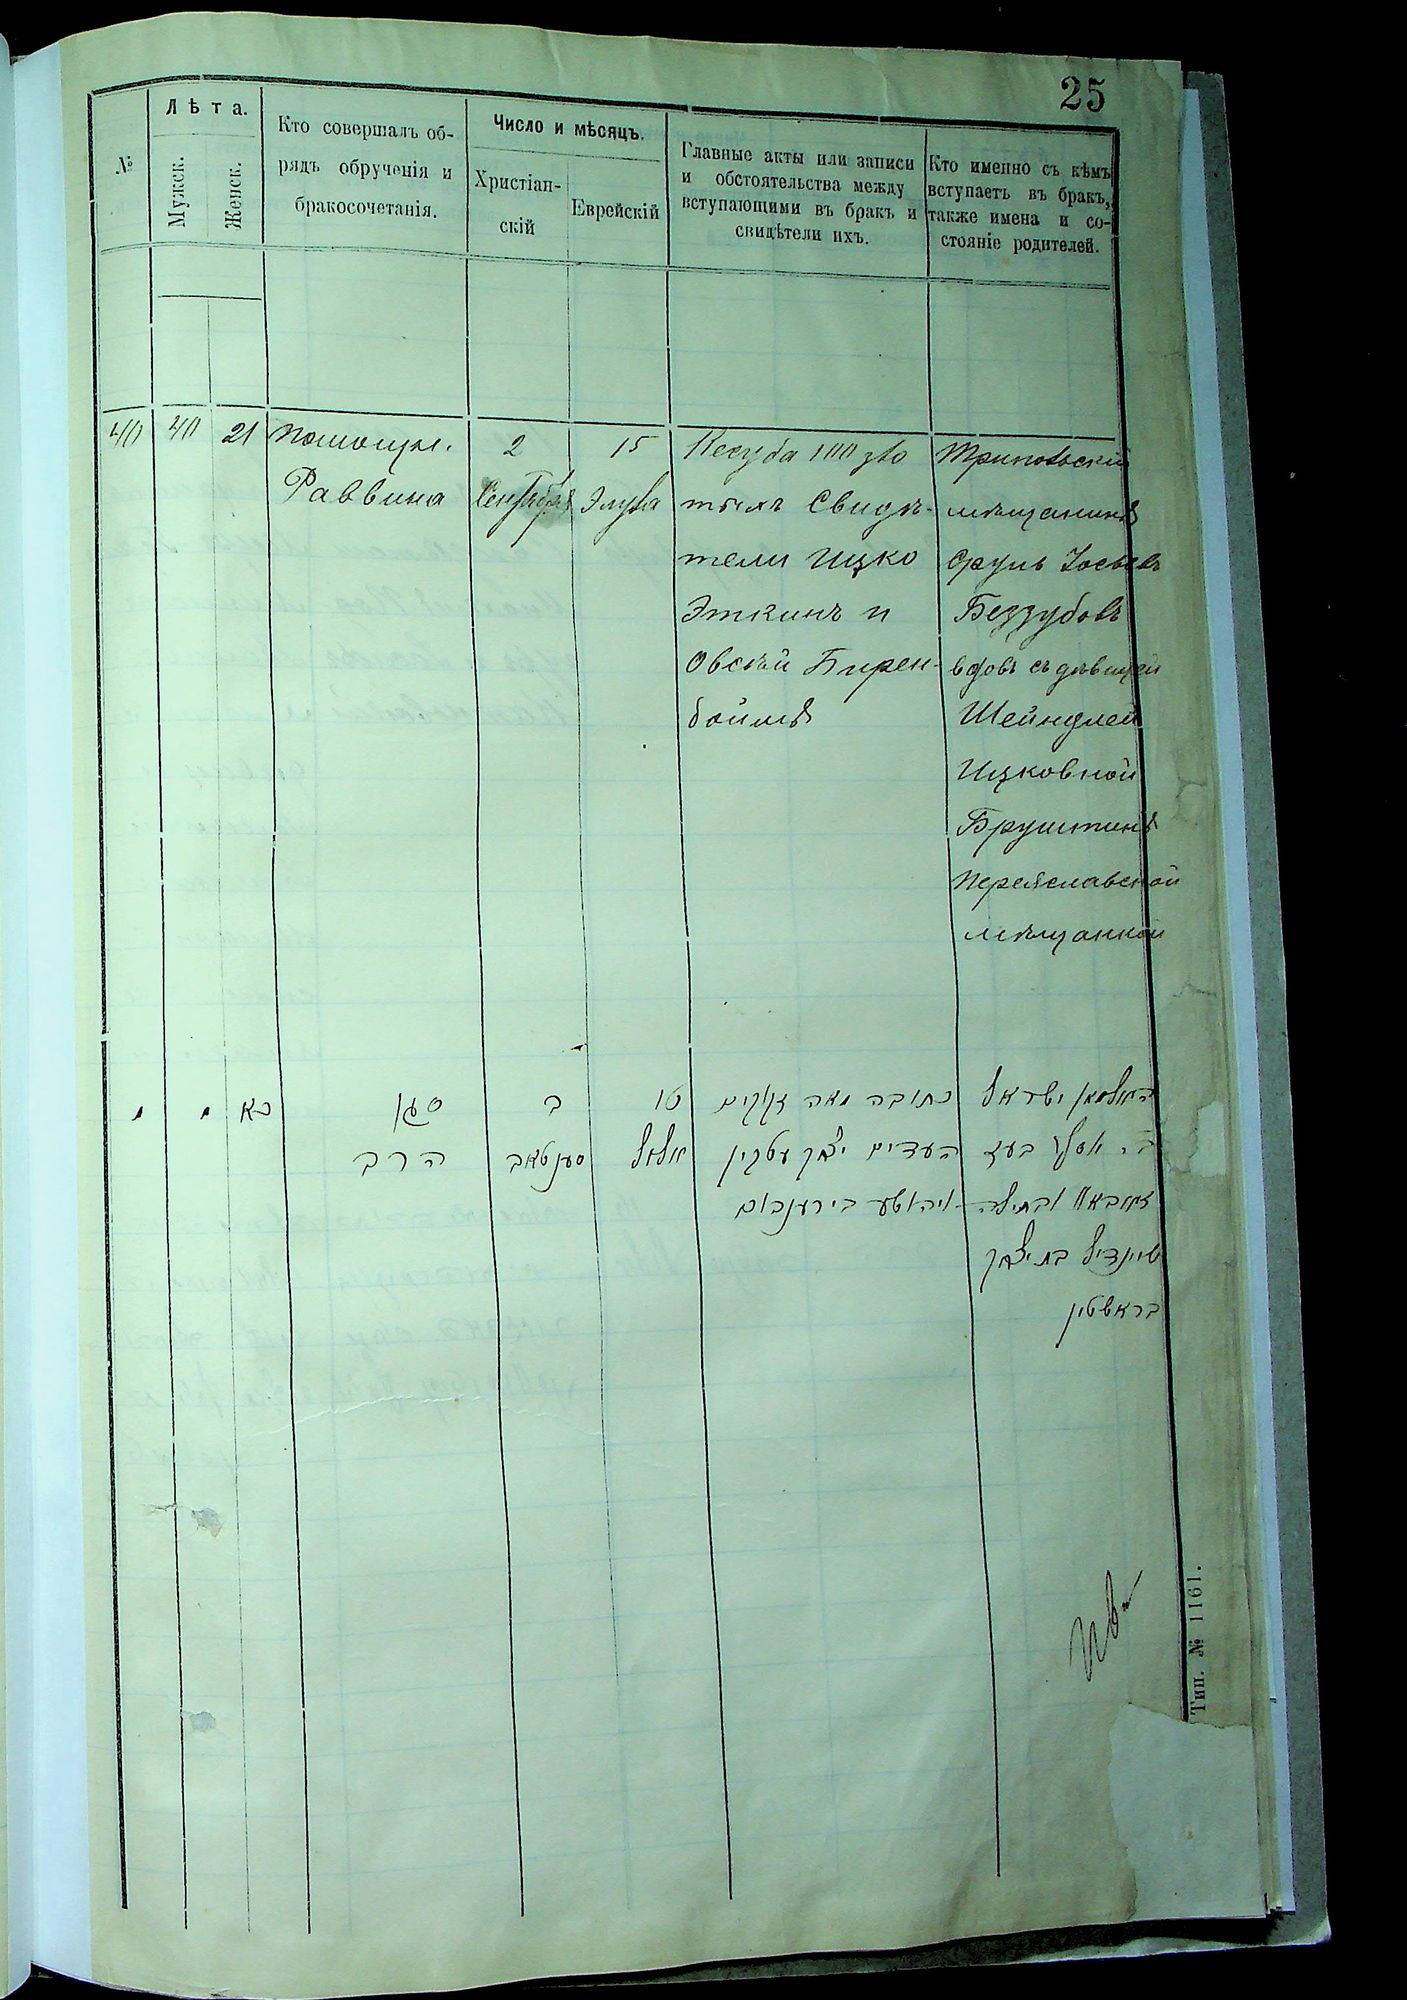 25
№
Лѣта.
Мужск.
Женск.
Кто совершалъ об-
рядъ обрученія и
бракосочетанія.
Число и мѣсяцъ.
Христіан-
скій
Еврейскій
Главные акты или записи
и обстоятельства между
вступающими въ бракъ и
свидѣтели ихъ.
Кто именно съ кѣмъ
вступаетъ въ бракъ,
также имена и со-
стояніе родителей.
40
40
21
Помощн.
Раввина
2
Сентября
15
Элула
Кесуба 100 зло
тыхъ Свидѣ-
тели Ицко
Эткинъ и
Овсѣй Бирен-
боймъ
Трипольскій
мѣщанинъ
Сруль Іосьевъ
Беззубовъ
вдовъ съ дѣвицей
Шейндлей
Ицковной
Бруштинъ
Переяславской
мѣщанкой
מ
מ
כא
סגן
הרב
ב
סענטאב
טו
אלול
כתובה מאה זקוקים
העדים יצחק עטקין
בירענבוים
האלמן ישראל
ב״ר יוסף בעז
זובאוו ובתולה
שיינדיל בת יצחק
בראשטין
Тип. № 1161.